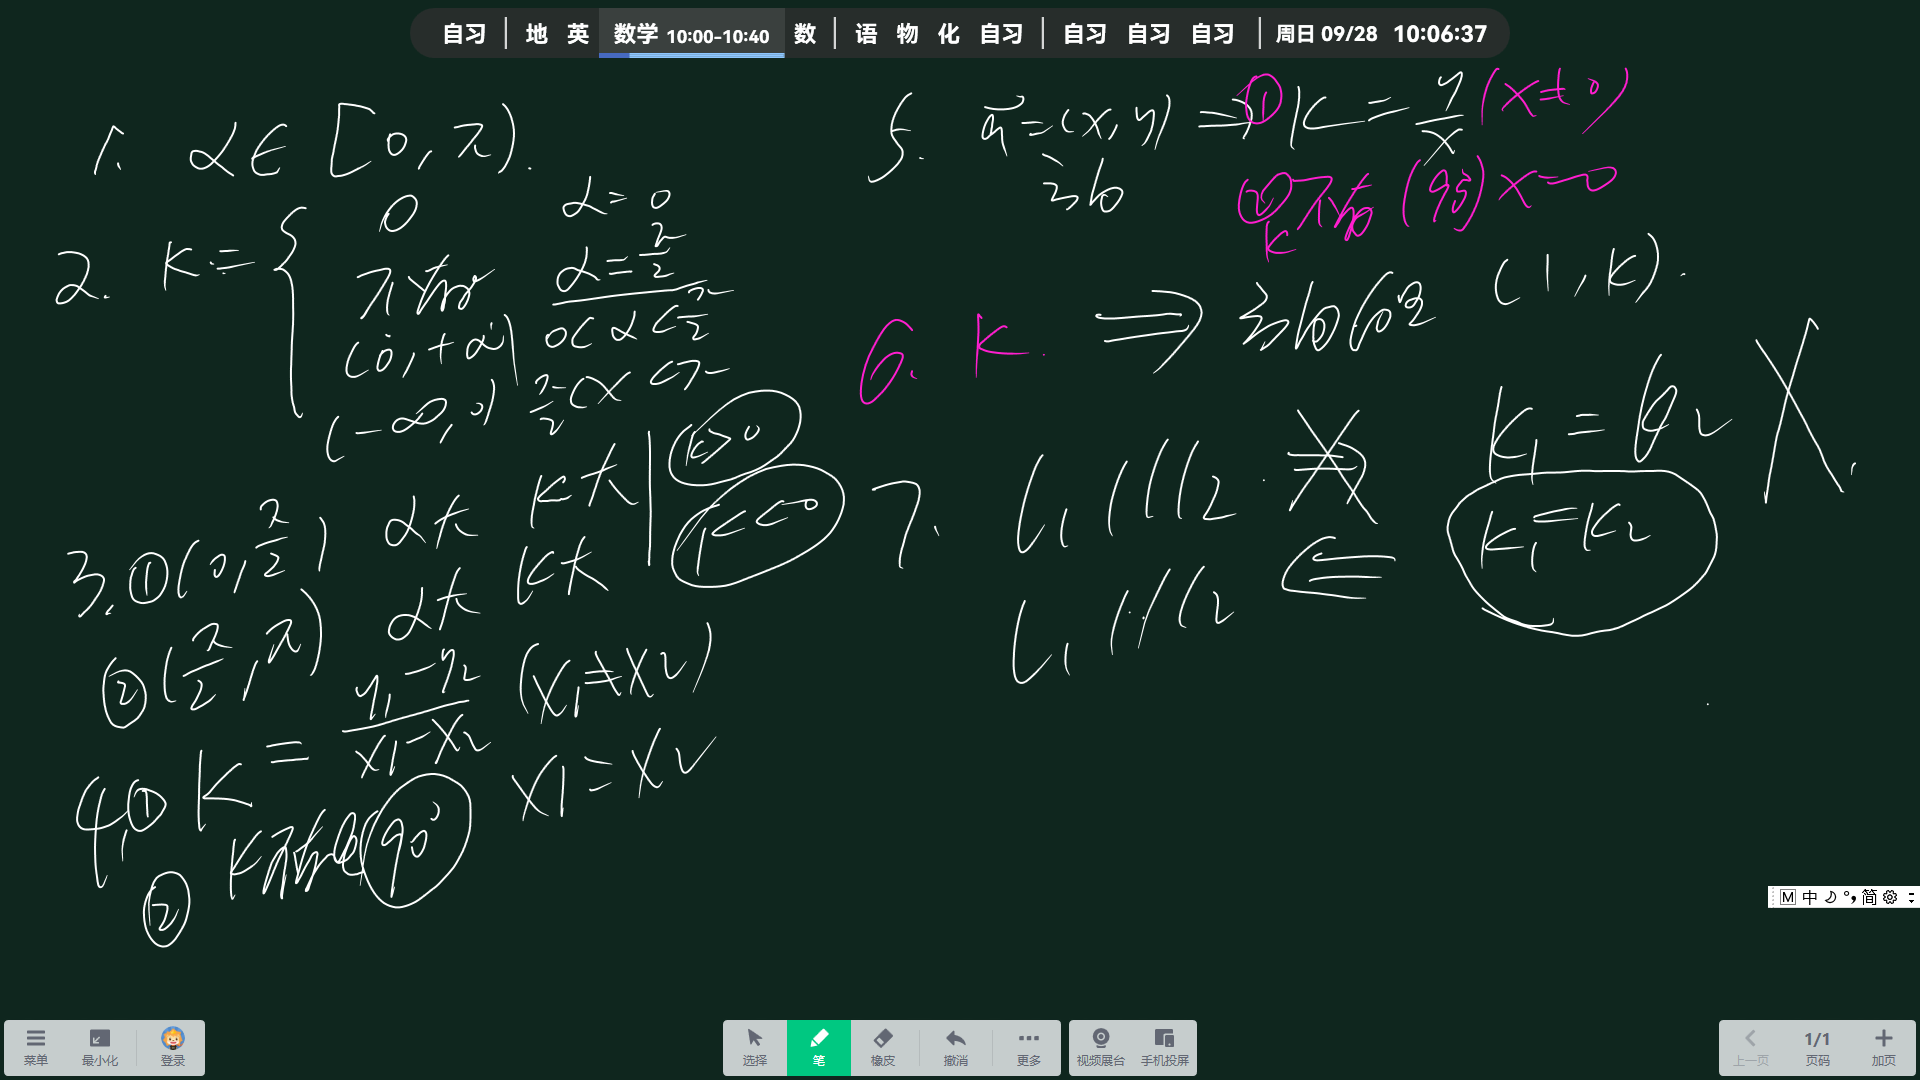 自习 | 地 英 数学 10:00-10:40 数 | 语 物 化 自习 | 自习 自习 自习 | 周日 09/28 10:06:37
1. α∈[0,π).
2. k= { 0 α=0
不存在 α=π/2
(0,+∞) 0<α<π/2
(-∞,0) π/2<α<π
3.①(0,π/2) α大 k大 k>0
②(π/2,π) α大 k大 k<0
4.① k=y1-y2/x1-x2 (x1≠x2)
② k不存在(90° x1=x2
5. a=(x,y) ⇒ ① k=y/x (x≠0)
方向 ② k不存在 (90°) x=0
6. k. ⇒ 方向向量 (1,k).
7. l1∥l2. ⇒ k1=k2
l1∥l2 ⇐ k1=k2
M 中 简
菜单 最小化 登录
选择 笔 橡皮 撤消 更多
视频展台 手机投屏
上一页 1/1 页码 加页